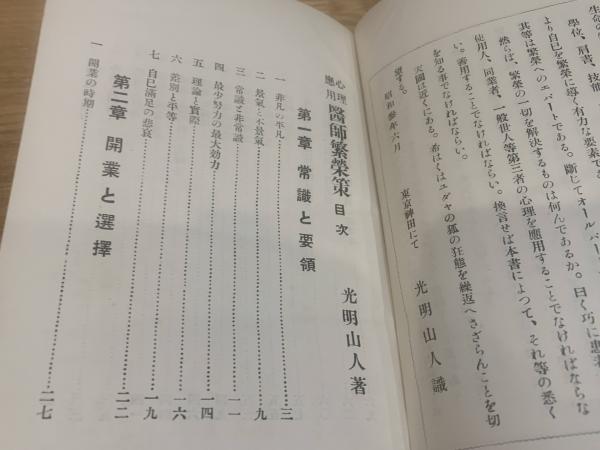 生命の
學位、肩書、技能
より自己を繁榮に導く有力な要素で
其等は繁榮へのエパートである。斷じてオール
然らば、繁榮の一切を解決するものは何んであるか。曰く巧に患者
使用人、同業者、一般世人等第三者の心理を應用することでなければならな
い。善用することでなければならい。換言せば本書によつて、それ等の悉く
を知る事でなければならない。
天國は近くにある。希はくはユダヤの狐の狂態を繰返へさざらんことを切
望する。
昭和參年六月
東京神田にて
光明山人識
心理應用 醫師繁榮策 目次
光明山人著
第一章 常識と要領
一 非凡の平凡……三
二 景氣と不景氣……九
三 常識と非常識……一一
四 最少努力の最大効力……一四
五 理論と實際……一六
六 差別と平等……一九
七 自己滿足の悲哀……二二
第二章 開業と選擇
一 開業の時期……二七